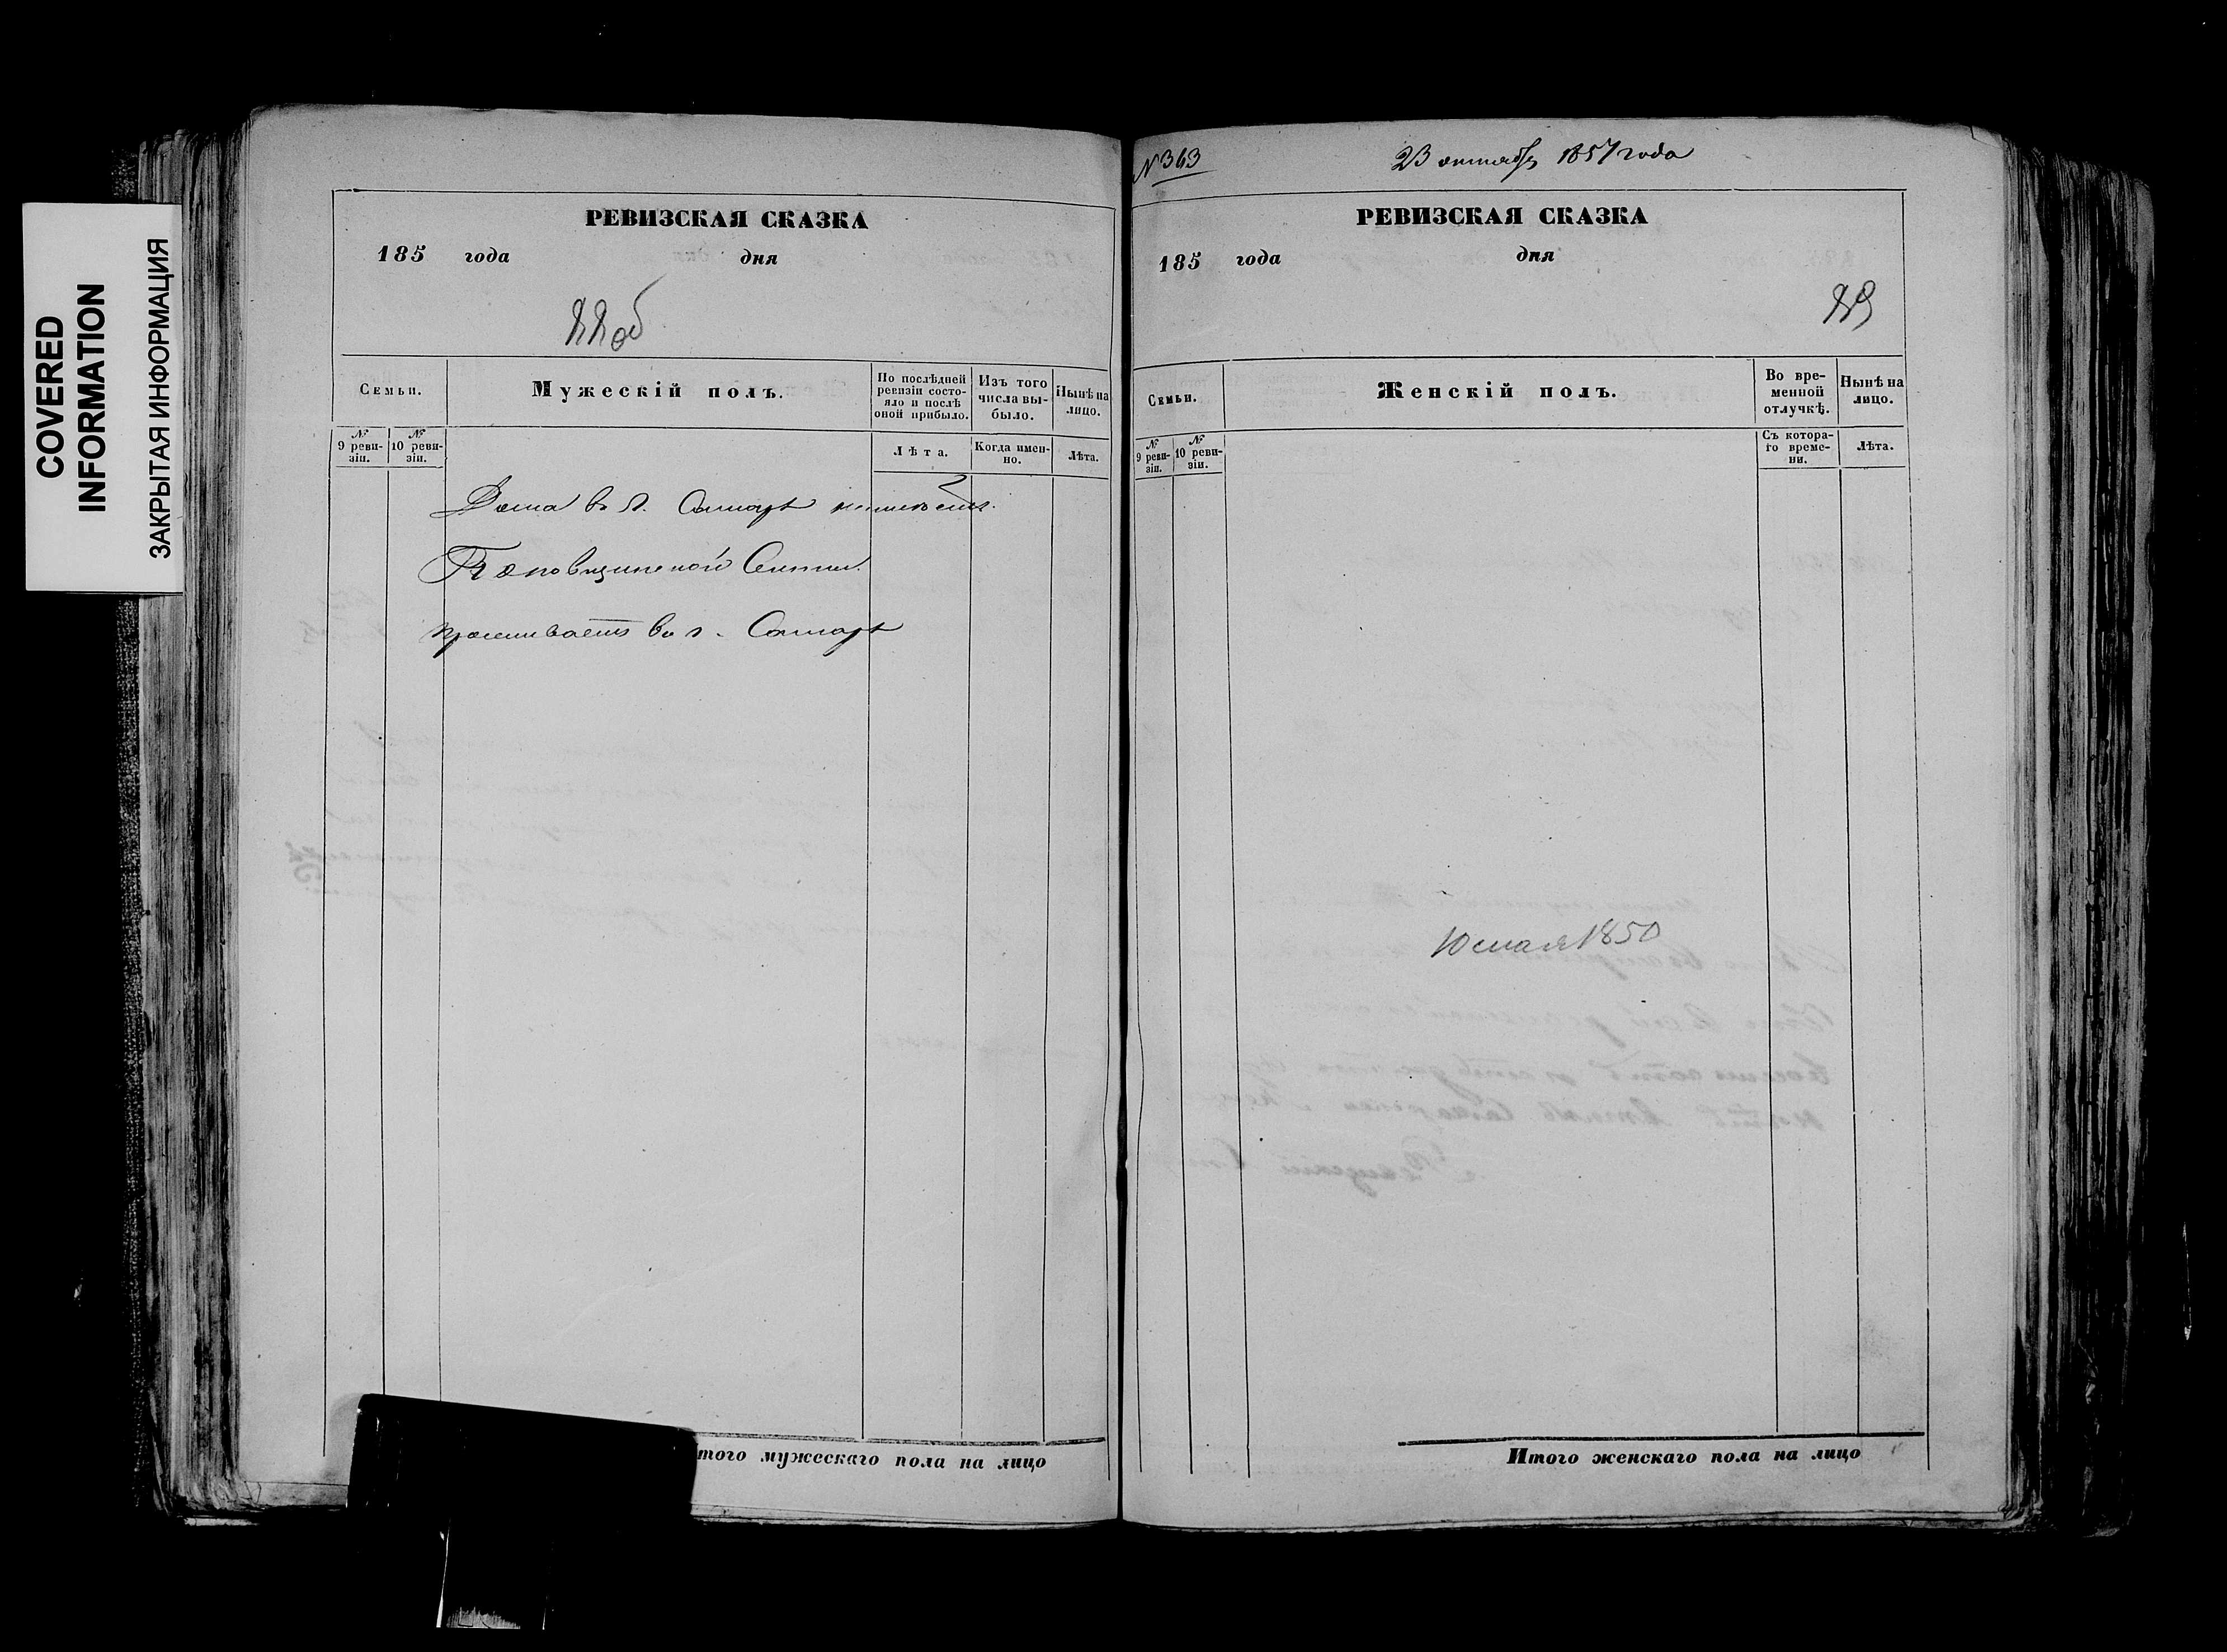 COVERED
INFORMATION
ЗАКРЫТАЯ ИНФОРМАЦИЯ
РЕВИЗСКАЯ СКАЗКА
185 года дня
Семьи.
Мужескій полъ.
По послѣдней ревизіи состо-
яло и послѣ
оной прибыло.
Изъ того
числа вы-
было.
Нынѣ на
лицо.
№
9 реви-
зіи.
№
10 реви-
зіи.
Лѣта.
Когда имен-
но.
Лѣта.
Дома въ г. Самарѣ неимѣетъ.
Поповщинской Секты.
проживаетъ въ г. Самарѣ
того мужескаго пола на лицо
№ 363
23 октября 1857 года
РЕВИЗСКАЯ СКАЗКА
185 года дня
Семьи.
Женскій полъ.
Во вре-
менной
отлучкѣ.
Нынѣ на
лицо.
№
9 реви-
зіи.
№
10 реви-
зіи.
Съ котора-
го време-
ни.
Лѣта.
10 мая 1850
Итого женскаго пола на лицо